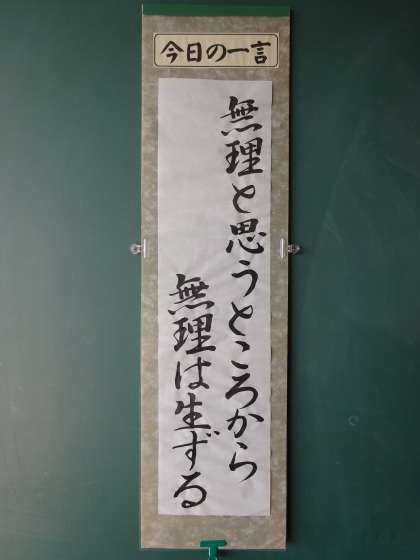 今日の一言
無理と思うところから
無理は生ずる